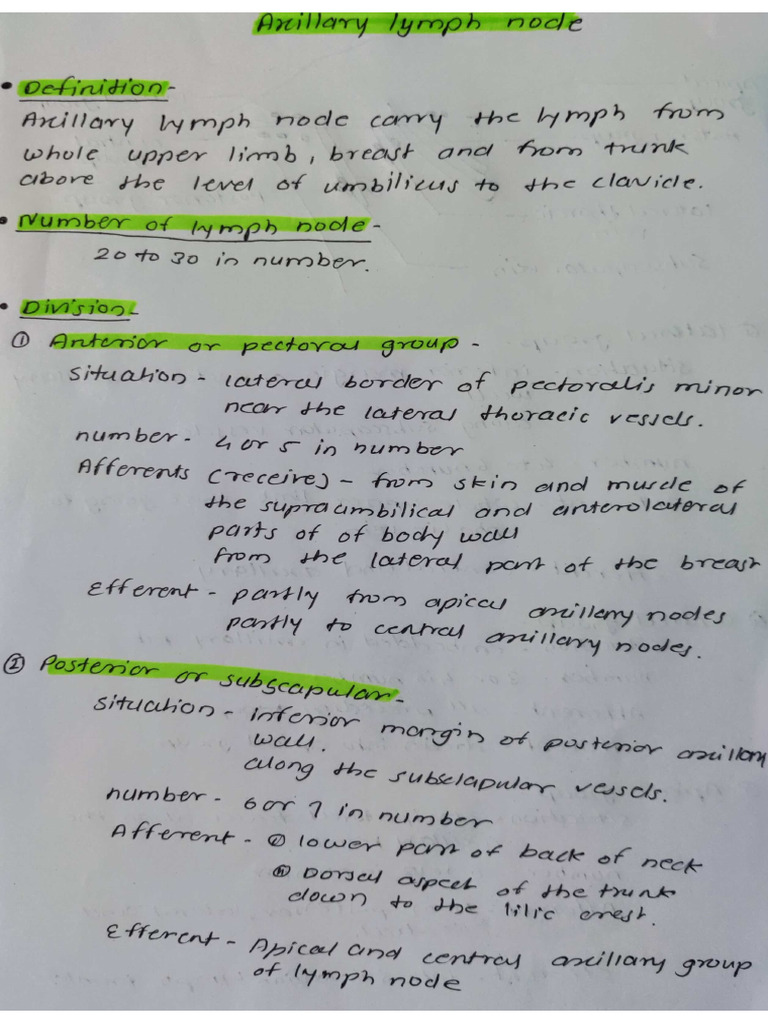 Axillary lymph node
• Definition-
Axillary lymph node carry the lymph from
whole upper limb, breast and from trunk
above the level of umbilicus to the clavicle.
• Number of lymph node-
20 to 30 in number.
• Division-
① Anterior or pectoral group -
Situation - lateral border of pectoralis minor
near the lateral thoracic vessels.
number - 4 or 5 in number
Afferents (receive) - from skin and muscle of
the supraumbilical and anterolateral
parts of of body wall
from the lateral part of the breast
Efferent - partly from apical axillary nodes
partly to central axillary nodes.
② Posterior or subscapular-
Situation - inferior margin of posterior axillary
wall.
along the subsclapular vessels.
number - 6 or 7 in number
Afferent - ⓘ lower part of back of neck
ⓘⓘ Dorsal aspect of the trunk
down to the lilic crest.
Efferent - Apical and central axillary group
of lymph node